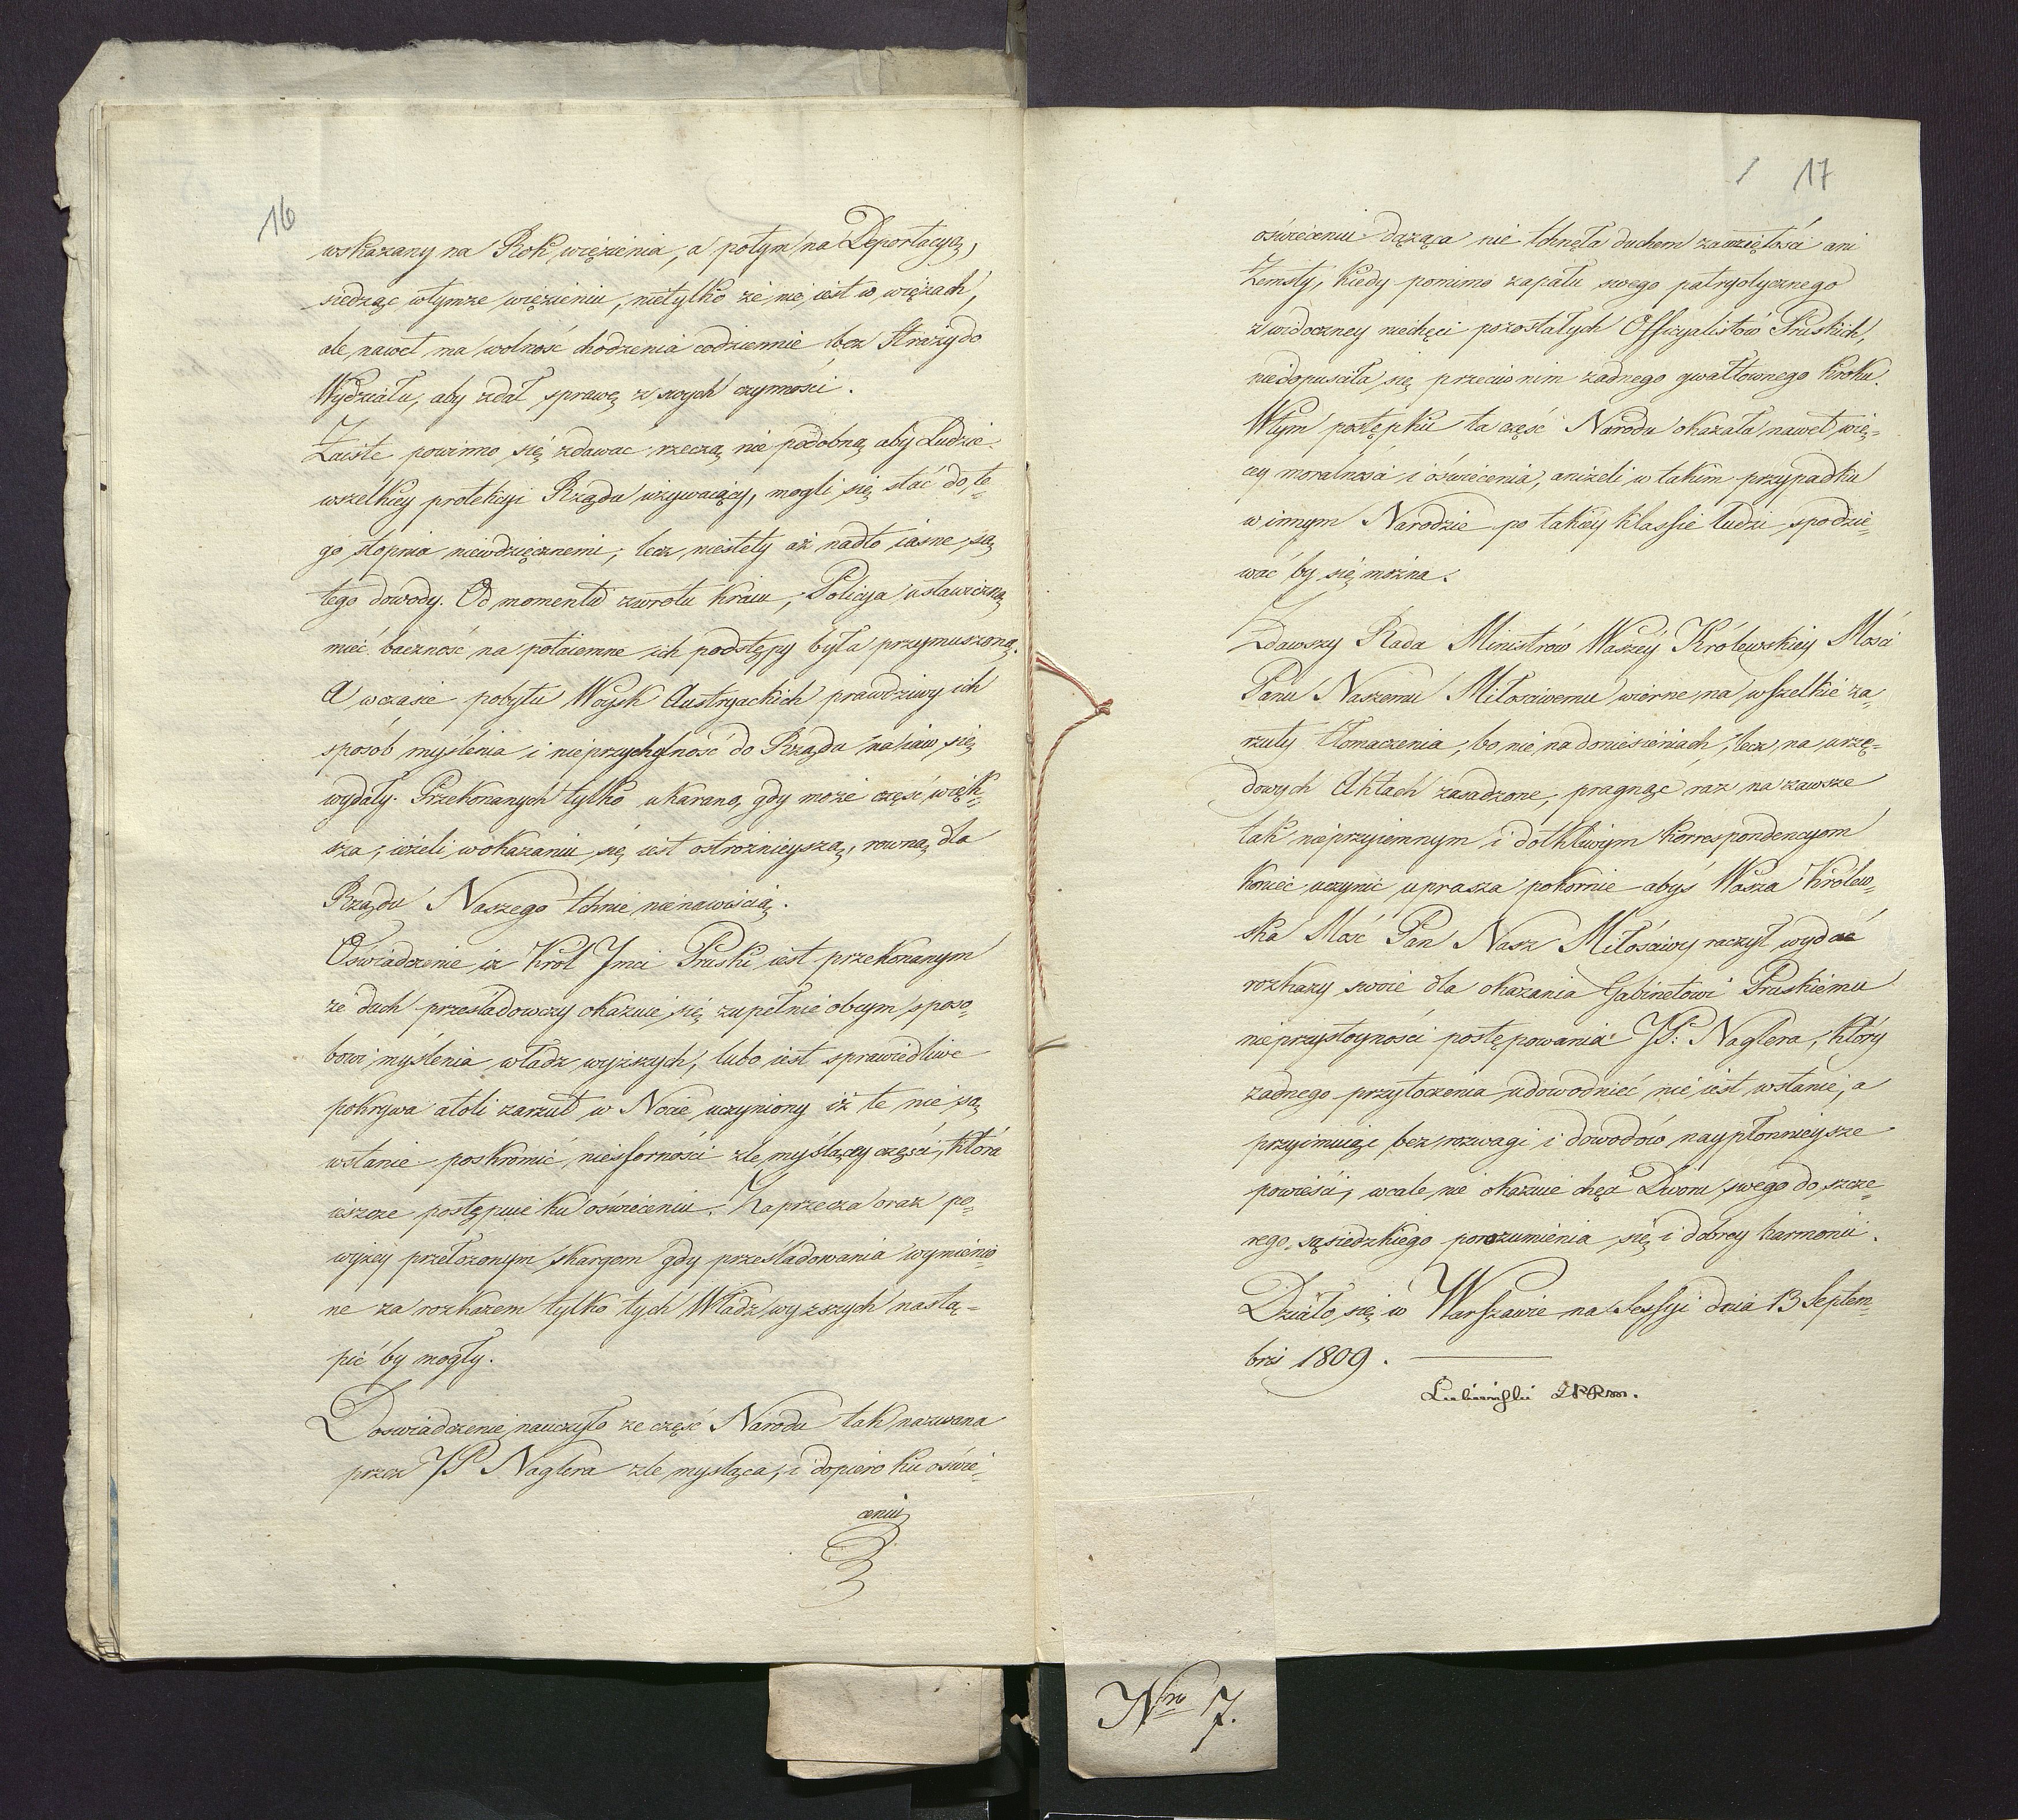 16
wskazany na Rok więzienia, a potym na Deportacyą,
siedząc wtymze więzieniu, nietylko że nie iest w więzach,
ale nawet ma wolność chodzenia codziennie bez Straży do
Wydziału, aby zdał sprawę z swych czynności.
Zaiste powinno się zdawac rzeczą nie podobną aby Ludzie
wszelkiey protekcyi Rządu używaiący, mogli się stać do te-
go stopnia niewdzięcznemi; lecz niestety aż nadto iasne są
tego dowody. Od momentu zwrotu Kraiu, Policya ustawiczną
mieć baczność na potaiemne ich podstępy była przymuszoną.
A wczasie pobytu Woysk Austryackich prawdziwy ich
sposób myślenia i nieprzychylność do Rządu na iaw się
wydały. Przekonanych tylko ukarano, gdy może część więk-
sza, ieżeli wokazaniu się iest ostrożnieyszą, rowną dla
Rządu Naszego tchnie nienawiścią.
Oświadczenie iż Król Jmci Pruski iest przekonanym
że duch prześladowczy okazuie się zupełnie obcym sposo-
bowi myślenia władz wyższych, lubo iest sprawiedliwe
pokrywa atoli zarzut w Nocie uczyniony iż te nie są
wstanie poskromić niesforności zle myślącey części, która
ieszcze postępuie ku oświeceniu. Zaprzecza oraz po-
wyżey przełożonym skargom gdy prześladowania wymienio
ne za rozkazem tylko tych Władz wyzszych nastą-
pić by mogły.
Doswiadczenie nauczyło że część Narodu tak nazwana
przez JP Naglera zle mysląca, i dopiero ku oświe-
ceniu
17
oświeceniu dążąca nie tchnęła duchem zawziętości ani
Zemsty, kiedy pomimo zapału swego patryotycznego
z widoczney niechęci pozostałych Officyalistów Pruskich,
niedopuściła się przeciw nim żadnego gwałtownego kroku.
Wtym postępku ta część Narodu okazała nawet wię-
cey moralności i oświecenia, aniżeli w takim przypadku
w innym Narodzie po takiey klassie ludzi spodzie-
wać by się można.
Zdawszy Rada Ministrów Waszey Królewskiey Mości
Panu Naszemu Miłosciwemu wierne na wszelkie za-
rzuty tłomaczenia, bo nie na doniesieniach, lecz na urzę-
dowych Aktach zasadzone, pragnąc raz na zawsze
tak nieprzyiemnym i dotkliwym korrespondencyom
koniec uczynić uprasza pokornie abyś Wasza Królew-
ska Mość Pan Nasz Miłościwy raczył wydać
rozkazy swoie dla okazania Gabinetowi Pruskiemu
nieprzystoyności postępowania JP: Naglera, który
żadnego przytoczenia udowodnieć nie iest wstanie, a
przyimuiąc bez rozwagi i dowodów naypłonnieysze
powieści, wcale nie okazuie chęci Dworu swego do szcze-
rego sąsiedzkiego porozumienia się i dobrey harmonii.
Działo się w Warszawie na Sessyi dnia 13 Septem-
bris 1809.
Nro 7.